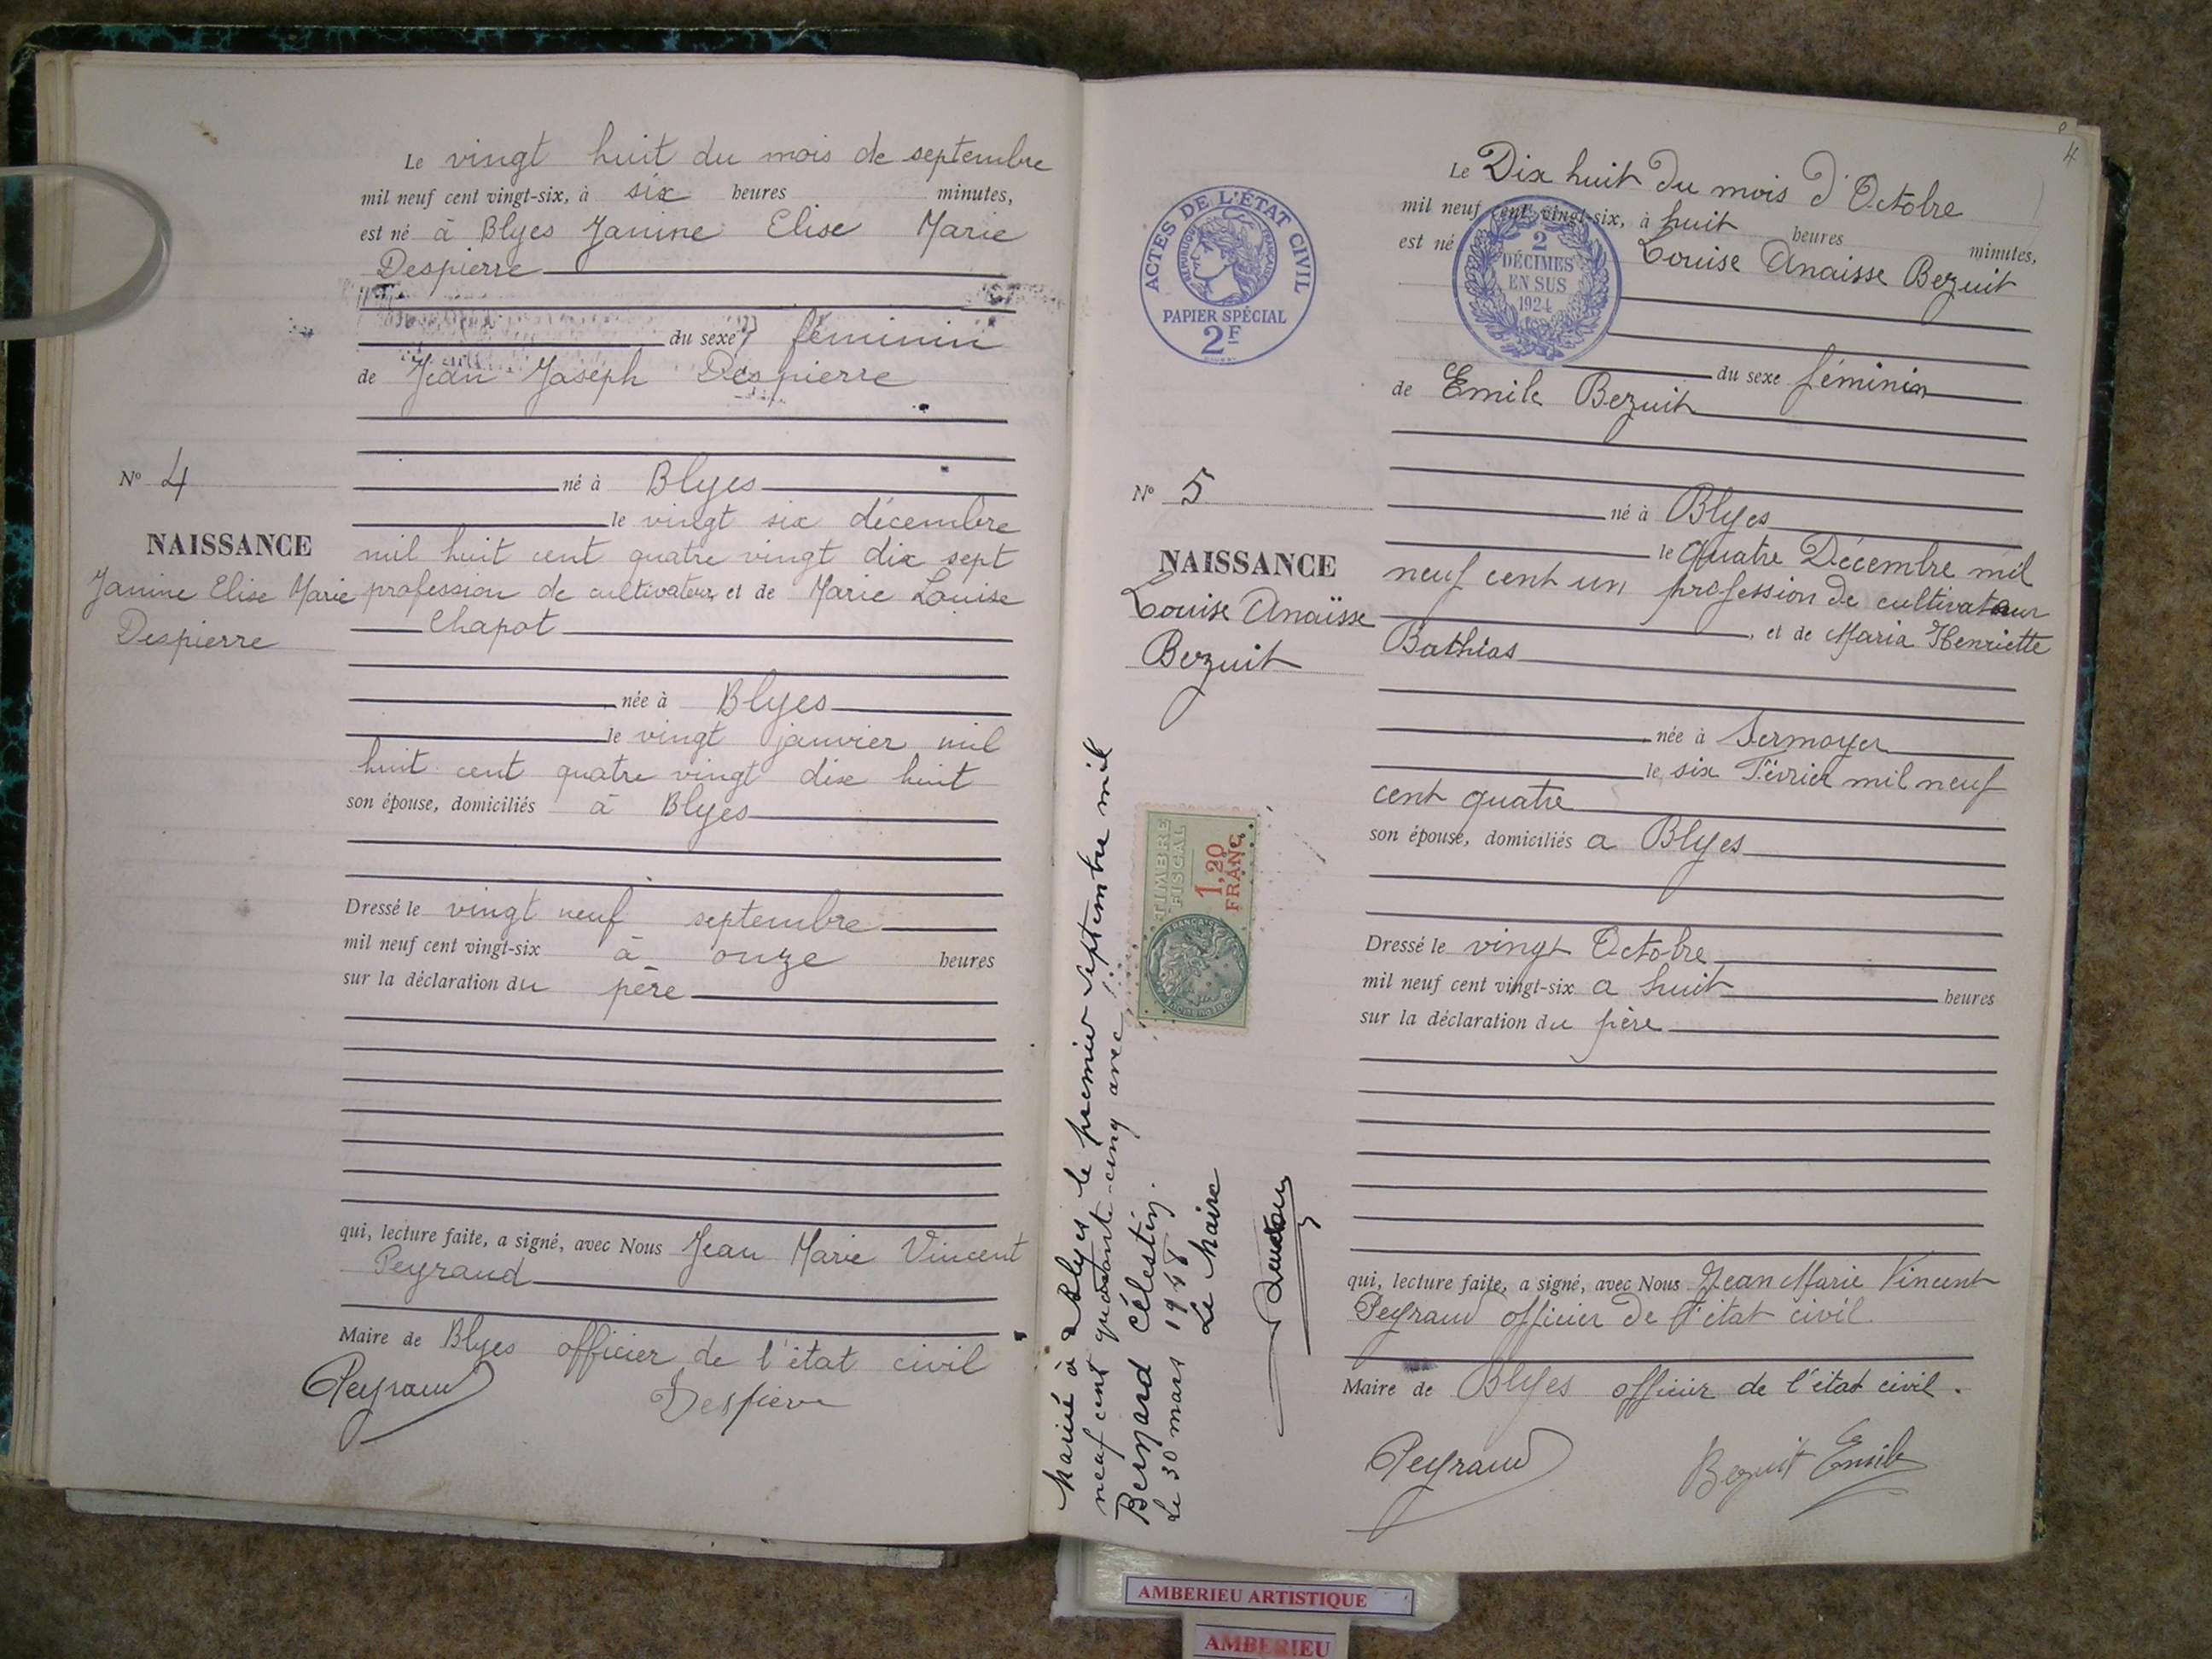 Le vingt huit du mois de septembre
mil neuf cent vingt-six, à six heures minutes,
est né à Blyes Janine Elise Marie
Despierre
du sexe féminin
de Jean Joseph Despierre
né à Blyes
le vingt six décembre
mil huit cent quatre vingt dix sept
profession de cultivateur, et de Marie Louise
Chapot
née à Blyes
le vingt janvier mil
huit cent quatre vingt dix huit
son épouse, domiciliés à Blyes
Dressé le vingt neuf septembre
mil neuf cent vingt-six à onze heures
sur la déclaration du père
qui, lecture faite, a signé, avec Nous Jean Marie Vincent
Peyraud
Maire de Blyes officier de l'état civil
Peyraud Despierre
No 4
NAISSANCE
Janine Elise Marie
Despierre
4
Le Dix huit du mois d'Octobre
mil neuf cent vingt-six, à huit heures minutes,
est né Louise Anaisse Bezuit
du sexe féminin
de Emile Bezuit
né à Blyes
le quatre Décembre mil
neuf cent un profession de cultivateur
, et de Maria Henriette
Bathias
née à Sermoyer
le six Février mil neuf
cent quatre
son épouse, domiciliés a Blyes
Dressé le vingt Octobre
mil neuf cent vingt-six a huit heures
sur la déclaration du père
qui, lecture faite, a signé, avec Nous Jean Marie Vincent
Peyraud officier de l'état civil.
Maire de Blyes officier de l'état civil.
Peyraud Bezuit Emile
ACTES DE L'ÉTAT CIVIL
RÉPUBLIQUE FRANÇAISE
PAPIER SPÉCIAL
2F
2
DÉCIMES
EN SUS
1924
No 5
NAISSANCE
Louise Anaïsse
Bezuit
TIMBRE
FISCAL
1,20
FRANC
Marié à Blyes le premier septembre mil
neuf cent quarante-cinq avec
Bernard Célestin.
Le 30 mars 1948
Le Maire
AMBERIEU ARTISTIQUE
AMBERIEU